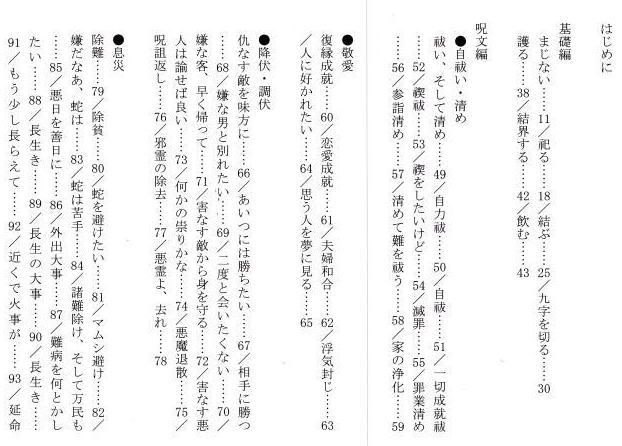 はじめに
基礎編
まじない……11／祀る……18／結ぶ……25／九字を切る……30
護る……38／結界する……42／飲む……43
呪文編
●自祓い・清め
祓い、そして清め……49／自力祓……50／自祓……51／一切成就祓
……52／禊祓……53／禊をしたいけど……54／滅罪……55／罪業清め
……56／参詣清め……57／清めて難を祓う……58／家の浄化……59
●敬愛
復縁成就……60／恋愛成就……61／夫婦和合……62／浮気封じ……63
／人に好かれたい……64／思う人を夢に見る……65
●降伏・調伏
仇なす敵を味方に……66／あいつには勝ちたい……67／相手に勝つ
……68／嫌な男と別れたい……69／二度と会いたくない……70／
嫌な客、早く帰って……71／害なす敵から身を守る……72／害なす悪
人は諭せば良い……73／何かの祟りかな……74／悪魔退散……75／
呪詛返し……76／邪霊の除去……77／悪霊よ、去れ……78
●息災
除難……79／除貧……80／蛇を避けたい……81／マムシ避け……82／
嫌だなあ、蛇は……83／蛇は苦手……84／諸難除け、そして万民も
……85／悪日を善日に……86／外出大事……87／難病を何とかし
たい……88／長生き……89／長生の大事……90／長生き……
91／もう少し長らえて……92／近くで火事が……93／延命